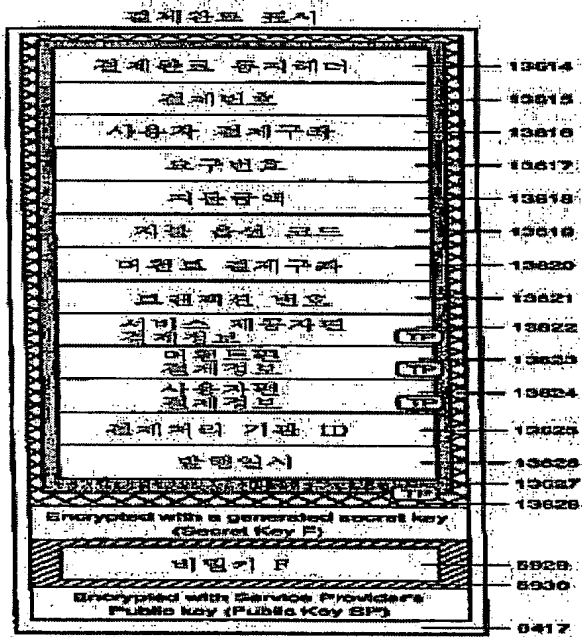 결제완료 통지
결제완료 통지헤더 13614
결제번호 13615
사용자 결제구좌 13616
요구번호 13617
지불금액 13618
지불 옵션 코드 13619
머천트 결제구좌 13620
트랜잭션 번호 13621
서비스 제공자편 결제정보 TP 13622
머천트편 결제정보 TP 13623
사용자편 결제정보 TP 13624
결제처리 기관 ID 13625
발행일시 13626
13627
TP 13628
Encrypted with a generated secret key
(Secret Key F)
비밀키 F 5929
5930
Encrypted with Service Provider's
Public key (Public Key SP)
6417